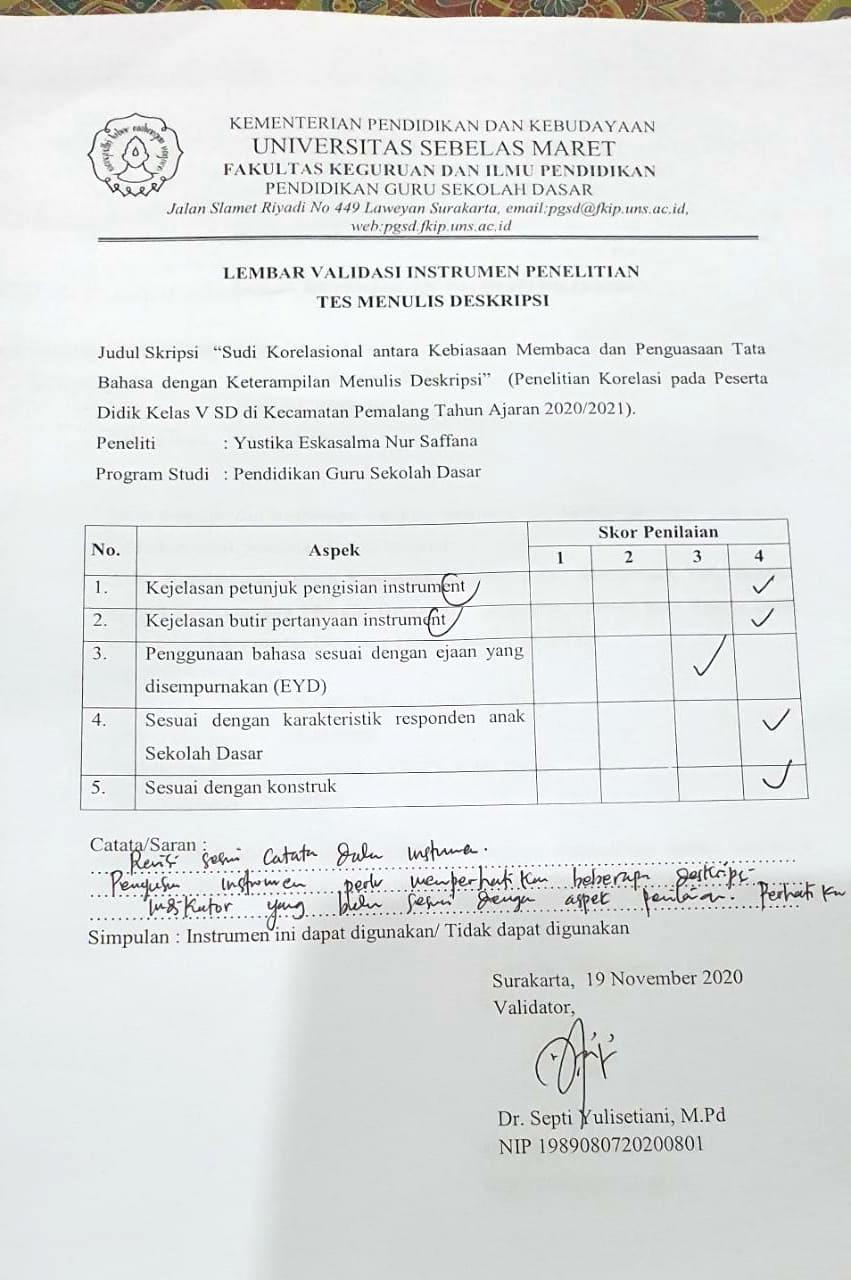 KEMENTERIAN PENDIDIKAN DAN KEBUDAYAAN
UNIVERSITAS SEBELAS MARET
FAKULTAS KEGURUAN DAN ILMU PENDIDIKAN
PENDIDIKAN GURU SEKOLAH DASAR
Jalan Slamet Riyadi No 449 Laweyan Surakarta, email:pgsd@fkip.uns.ac.id,
web:pgsd.fkip.uns.ac.id
LEMBAR VALIDASI INSTRUMEN PENELITIAN
TES MENULIS DESKRIPSI
Judul Skripsi “Sudi Korelasional antara Kebiasaan Membaca dan Penguasaan Tata
Bahasa dengan Keterampilan Menulis Deskripsi” (Penelitian Korelasi pada Peserta
Didik Kelas V SD di Kecamatan Pemalang Tahun Ajaran 2020/2021).
Peneliti : Yustika Eskasalma Nur Saffana
Program Studi : Pendidikan Guru Sekolah Dasar
No. Aspek Skor Penilaian
1 2 3 4
1. Kejelasan petunjuk pengisian instrument ✓
2. Kejelasan butir pertanyaan instrument ✓
3. Penggunaan bahasa sesuai dengan ejaan yang ✓
disempurnakan (EYD)
4. Sesuai dengan karakteristik responden anak ✓
Sekolah Dasar
5. Sesuai dengan konstruk ✓
Catata/Saran :
Revisi sesuai catatan dalam instrumen.
instrumen perlu memperhatikan beberapa deskripsi
indikator yang belum sesuai dengan aspek penilaian. Perhatikan
Simpulan : Instrumen ini dapat digunakan/ Tidak dapat digunakan
Surakarta, 19 November 2020
Validator,
Dr. Septi Yulisetiani, M.Pd
NIP 1989080720200801